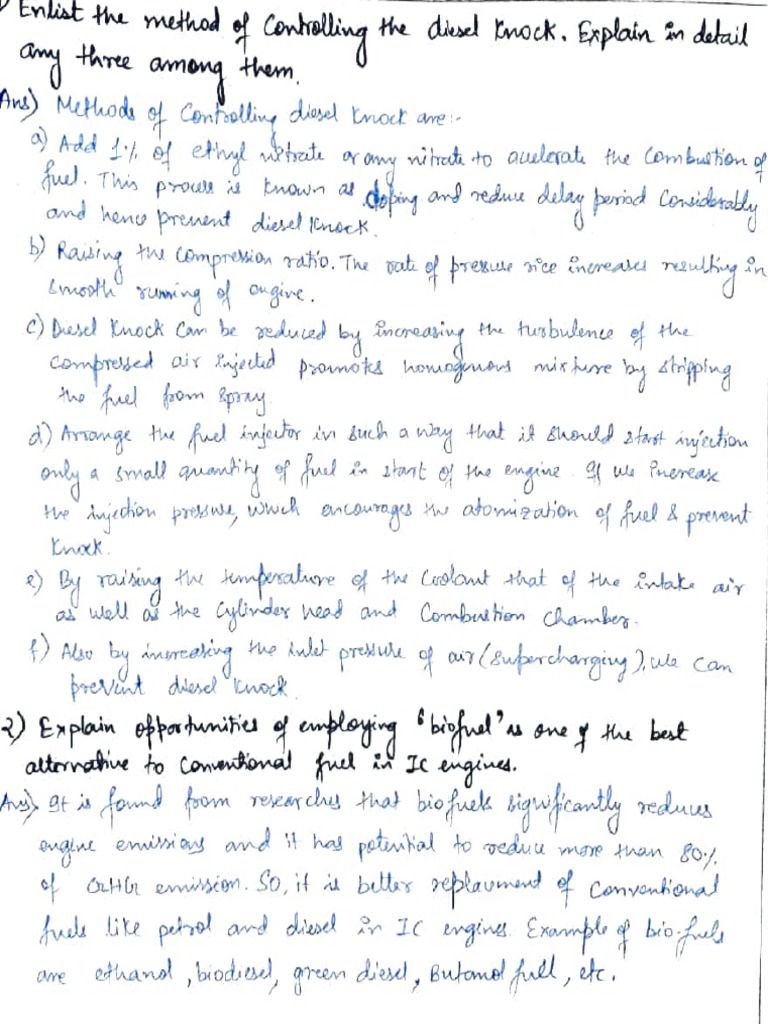 ) Enlist the method of Controlling the diesel Knock. Explain in detail
any three among them.
Ans) Methods of Controlling diesel Knock are:-
a) Add 1% of ethyl nitrate or any nitrate to accelerate the Combustion of
fuel. This process is known as doping and reduce delay period Considerably
and hence prevent diesel Knock.
b) Raising the compression ratio. The rate of pressure rice increases resulting in
Smooth running of engine.
c) Diesel Knock Can be reduced by increasing the turbulence of the
compressed air injected promotes homogenous mixture by stripping
the fuel from spray
d) Arrange the fuel injector in such a way that it should start injection
only a small quantity of fuel in start of the engine. If we increase
the injection pressure, which encourages the atomization of fuel & prevent
Knock.
e) By raising the temperature of the Coolant that of the intake air
as well as the Cylinder head and Combustion Chamber.
f) Also by increasing the inlet pressure of air (supercharging), we can
prevent diesel Knock.
2) Explain opportunities of employing 'biofuel' as one of the best
alternative to Conventional fuel in IC engines.
Ans) It is found from researches that biofuels significantly reduces
engine emissions and it has potential to reduce more than 80%
of emission. So, it is better replacement of Conventional
fuels like petrol and diesel in IC engines. Example of bio-fuels
are ethanol, biodiesel, green diesel, Butanol full, etc.